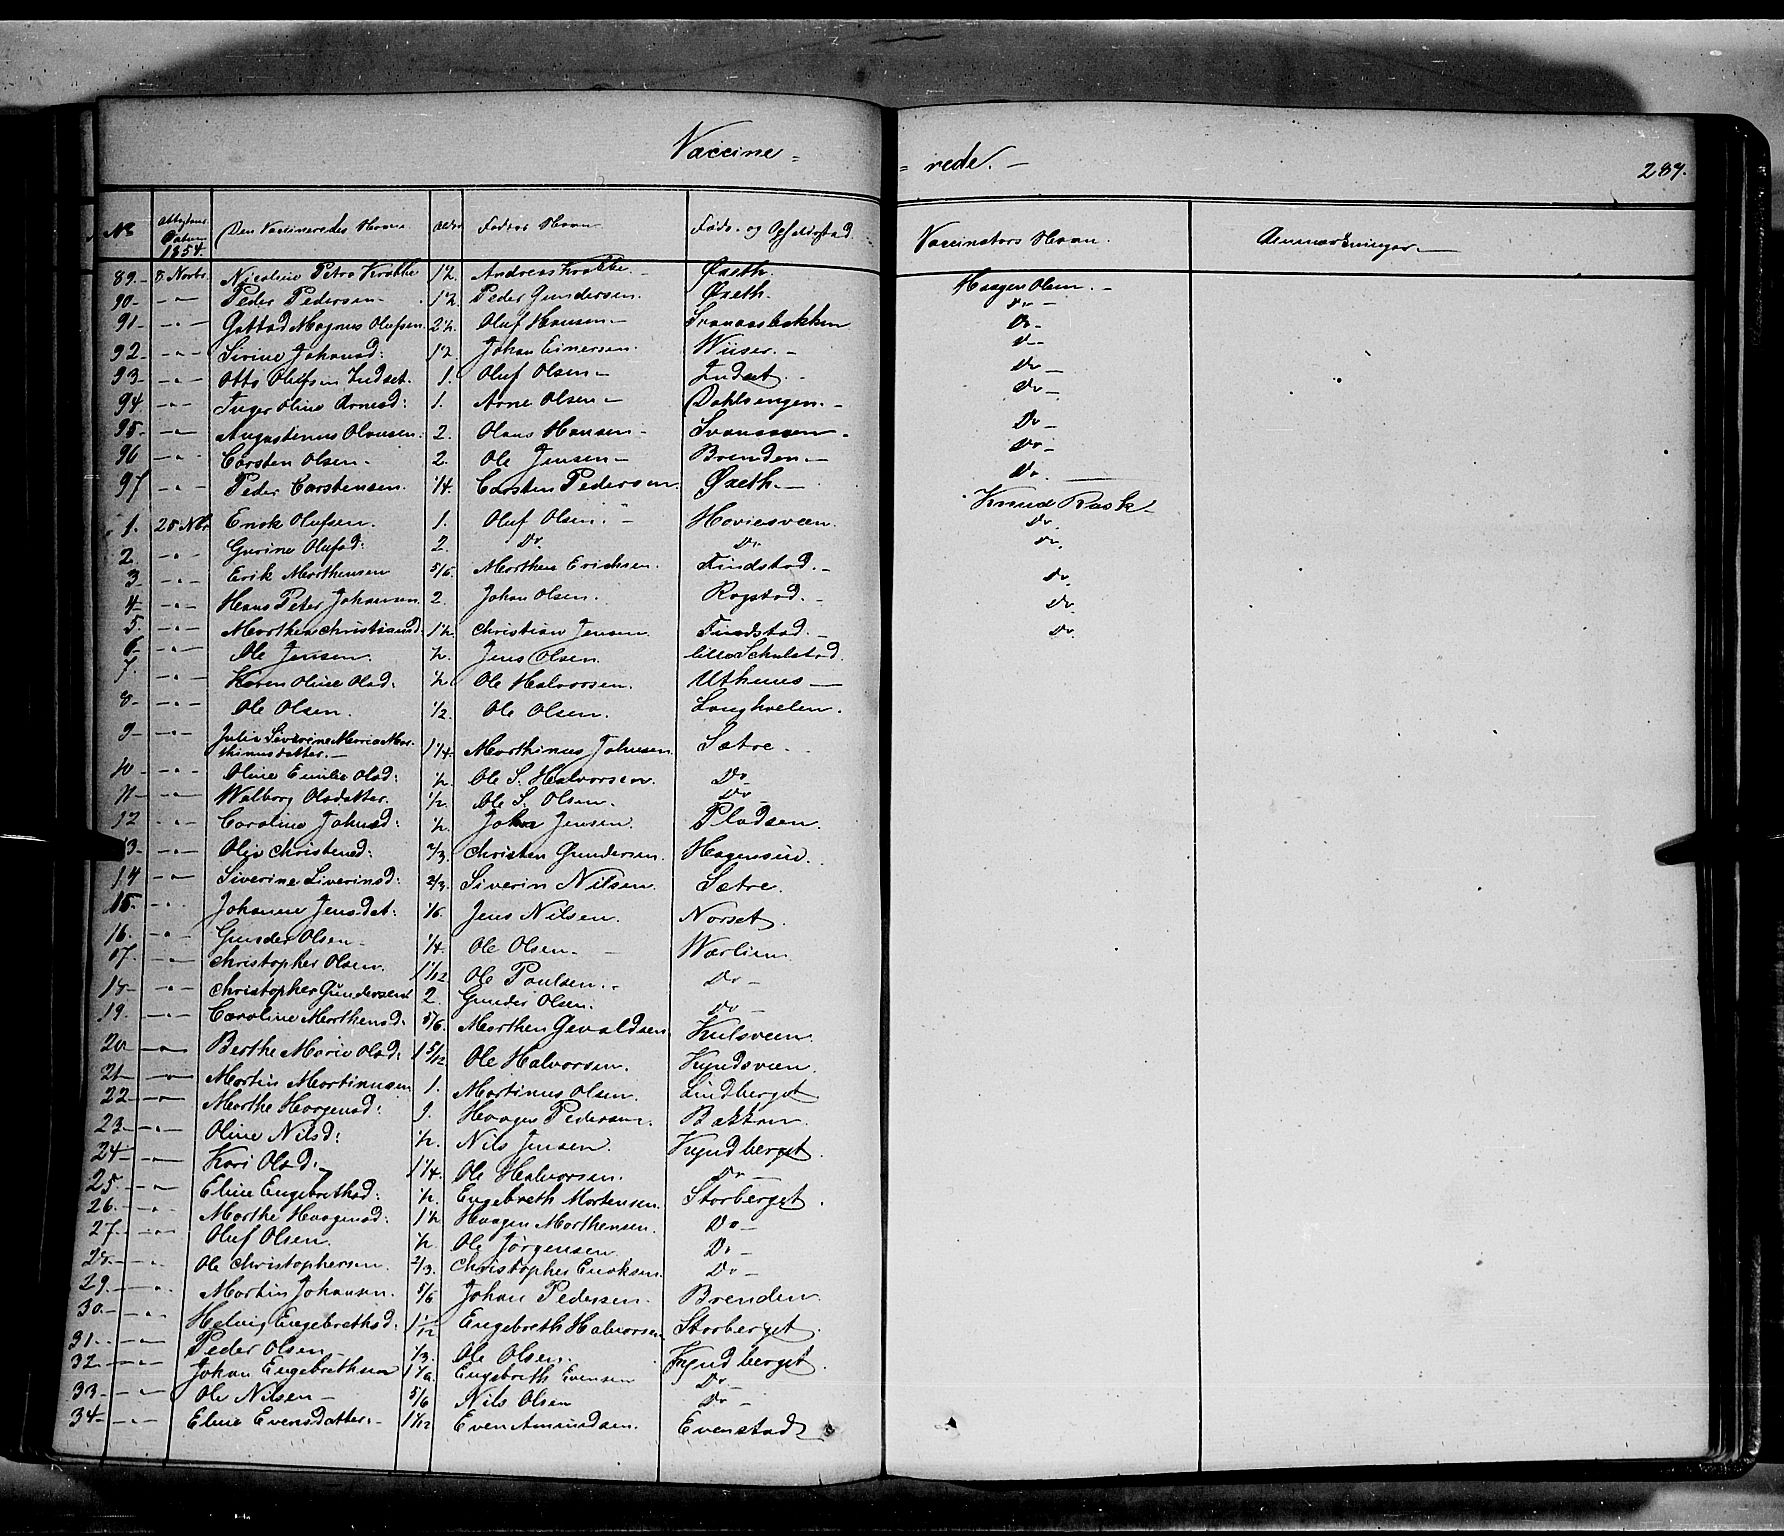 Vaccine= =rede.- 287.
No Attestens Datum 1854. Den Vaccineredes Navn Alder Fadrens Navn Føde- og Opholdsstad Vaccinators Navn. Anmærkninger
89- 8 Novbr Nicoline Petra Krabbe 1½ Andreas Krabbe.- Øxeth. Haagen Olsen.-
90- -"- Peder Pedersen- 1½ Peder Gundersen. Øxeth. Do-
91- -"- Magnus Olufsen. 2½ Oluf Hansen- Svanaasbakken Do-
92- -"- Sirine Johansd: 1½ Johan Einersen. Wiiser.- Do-
93- -"- Otto Olufsen Indset. 1. Oluf Olsen- Indset.- Do-
94- -"- Inger Oline Arnesd: 1. Arne Olsen- Dahlsengen.- Do-
95- -"- Augustinus Olausen. 2. Olaus Hansen- Svanaaen- Do-
96- -"- Carsten Olsen- 2. Ole Jensen- Brenden.- Do-
97 -"- Peder Carstensen. ¼. Carsten Pedersen. Øxeth.- Do.
1. 25 Nbr Enok Olufsen. 1. Oluf Olsen.- Hoviesveen. Knud Rask-
2. -"- Gurine Olufsd: 2. Do. Do- Do.
3- -"- Erik Morthensen 5/6. Morthen Erichsen. Findstad.- Do.
4- -"- Hans Peter Johansen. 2. Johan Olsen. Rogstad.- Do.
5- -"- Morthen Christiansd: 1½ Christian Jensen. Findstad.- Do.
6- -"- Ole Jensen. ½. Jens Olsen. lille Schulstad. Do.
7. -"- Karen Oline Olsd: ½ Ole Halvorsen. Uthuus-
8- -"- Ole Olsen. 1/2. Ole Olsen. Langholen.
9- -"- Julia Siverine Maria Mor-
thinusdatter.- 1¼- Morthinus Johnsen. Sætre.
10- -"- Oline Emilie Olsd: ½. Ole S. Halvorsen. Do-
11- -"- Walborg Olsdatter. ½. Ole S. Olsen. Do-
12 -"- Caroline Johnsd: ½. John Jensen. Pladsen.
13- -"- Olia Christensd: 2/3. Christen Gundersen. Hagensiie.
14 -"- Siverine Siverinsd: 2/3. Siverin Nilsen. Sætre.
15- -"- Johanne Jensdat: 1/6. Jens Nilsen. Norset.
16. -"- Gunder Olsen- ¼. Ole Olsen.- Wærlien
17. -"- Christopher Olsen. 1 1/12 Ole Paulsen.- Do-
18- -"- Christopher Gundersen 2. Gunder Olsen. Do-
19. -"- Caroline Morthensd. 5/6. Morthen Gevaldsen Kulsveen
20 -"- Berthe Marie Olsd: 1 5/12 Ole Halvorsen. Kyndsveen.
21- -"- Martin Martinusen 1. Martinus Olsen. Lindberget
22- -"- Marthe Haagensd: 9. Haagen Pedersen. Bakken.
23- -"- Oline Nilsd: ½. Nils Jensen. Kyndberget.
24- -"- Kari Olsd:- 1¼. Ole Halvorsen. Do-
25 -"- Eline Engebrethsd: ½. Engebreth Mortensen. Storberget.
26.- -"- Marthe Haagensd: 1½ Haagen Morthensen. Do-
27.- -"- Oluf Olsen. ½. Ole Jørgensen. Do-
28- -"- Ole Christophersen. 2/3. Christopher Enoksen. Do-
29.- -"- Martin Johansen. 5/6 Johan Pedersen. Brenden.
30.- -"- Helvig Engebrethsd: 1 1/12 Engebreth Halvorsen Storberget.
31.- -"- Peder Olsen- 1/3. Ole Olsen. Kyndberget.
32.- -"- Johan Engebrethsen Engebreth Evensen Do-
33- -"- Ole Nilsen- 5/6 Nils Olsen Do-
34- -"- Eline Evensdatter.- 1 1/12 Even Amundsen. Evenstad